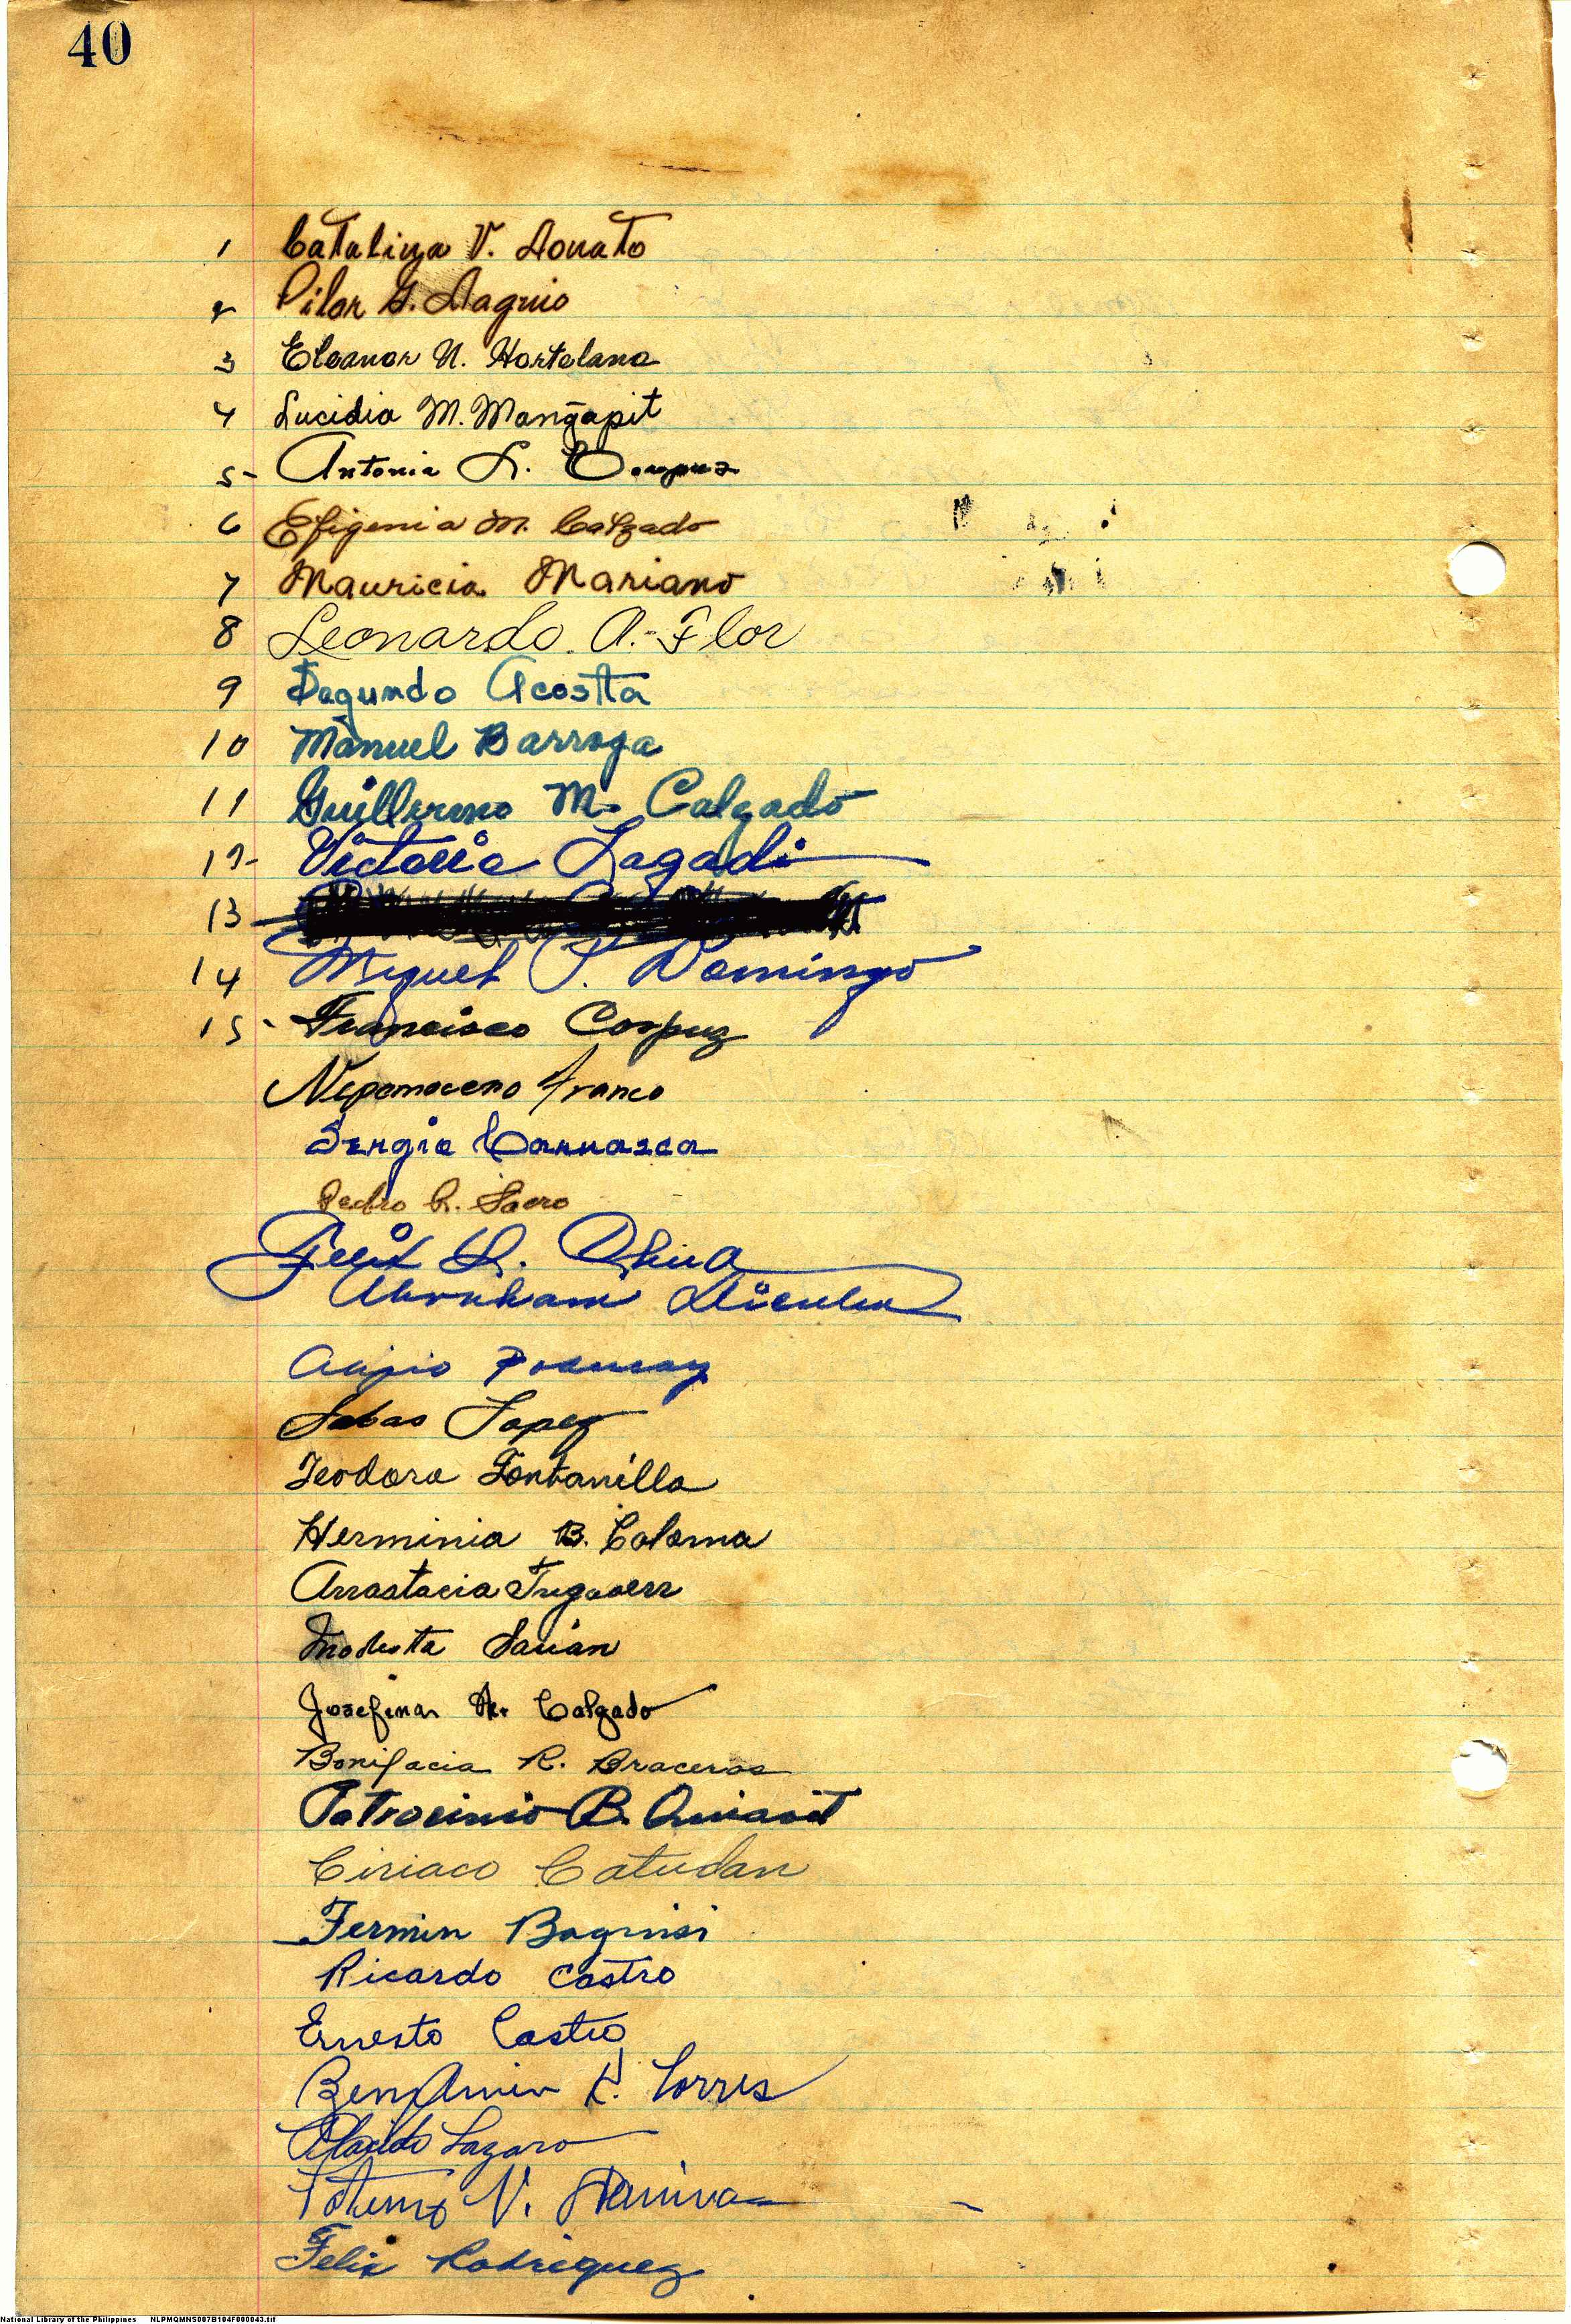 40
1 Catalina V. Donato
2 Pilar G. Daguio
3 Eleanor U. Hortelano
4 Lucidia M. Mangapit
5- Antonia L. Corpuz
6 Efigenia M. Calzado
7 Mauricia Mariano
8 Leonardo A. Flor
9 Segundo Acosta
10 Manuel Barroga
11 Guillermo M. Calzado
12- Victoria Lagadi
13
14 Miguel P. Domingo
15- Francisco Corpuz
Nepomoceno Franco
Sergio Carrasca
Pedro R. Sacro
Felix L.
Abraham
Lopez
Teodora Fontanilla
Herminia B. Coloma
Modesta
Josefina A. Calzado
Bonifacia R. Braceros
Patrocinio B.
Ciriaco Catudan
Fermin
Ricardo Castro
Ernesto Castro
Benjamin K. Torres
Placido Lazaro
V.
Felix Rodriguez
National Library of the Philippines NLPMQMNS007B104F000043.tif